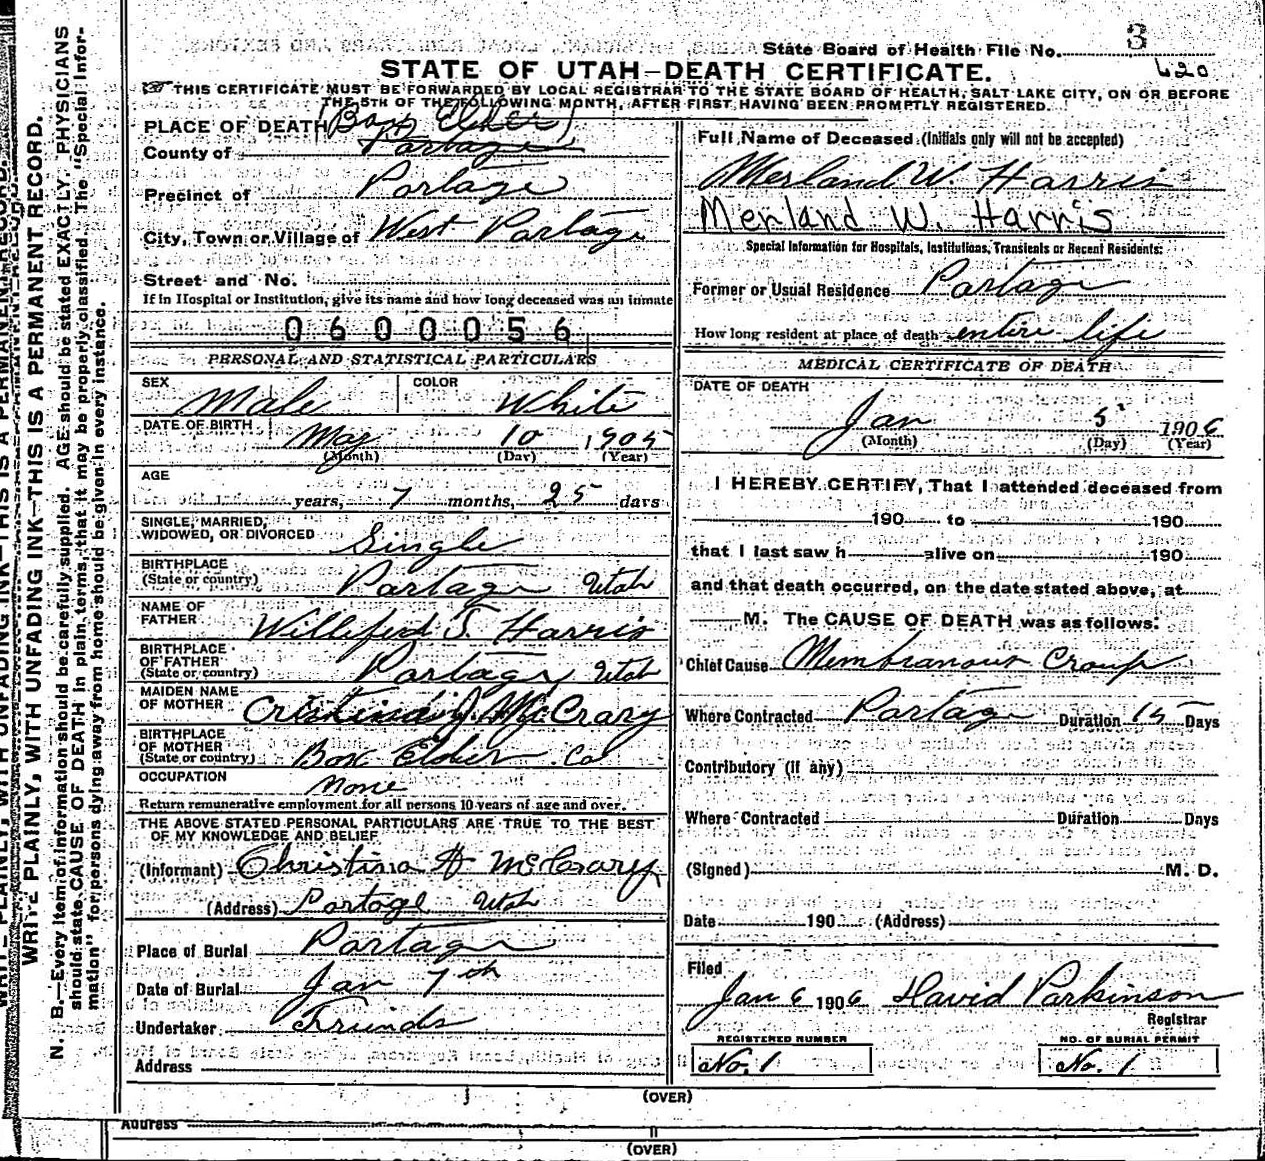 State Board of Health File No. 3
620
STATE OF UTAH—DEATH CERTIFICATE.
THIS CERTIFICATE MUST BE FORWARDED BY LOCAL REGISTRAR TO THE STATE BOARD OF HEALTH, SALT LAKE CITY, ON OR BEFORE
THE 5TH OF THE FOLLOWING MONTH, AFTER FIRST HAVING BEEN PROMPTLY REGISTERED.
PLACE OF DEATH (Box Elder)
County of Portage
Precinct of Portage
City, Town or Village of West Portage
Street and No.
If in Hospital or Institution, give its name and how long deceased was an inmate
0600056
PERSONAL AND STATISTICAL PARTICULARS
SEX Male COLOR White
DATE OF BIRTH May 10 1905
(Month) (Day) (Year)
AGE
years, 7 months, 25 days
SINGLE, MARRIED,
WIDOWED, OR DIVORCED Single
BIRTHPLACE
(State or country) Portage Utah
NAME OF
FATHER Willeford T. Harris
BIRTHPLACE
OF FATHER
(State or country) Portage Utah
MAIDEN NAME
OF MOTHER Cristina J. McCrary
BIRTHPLACE
OF MOTHER
(State or country) Box Elder Co
OCCUPATION None
Return remunerative employment for all persons 10 years of age and over.
THE ABOVE STATED PERSONAL PARTICULARS ARE TRUE TO THE BEST
OF MY KNOWLEDGE AND BELIEF
(Informant) Christina H McCrary
(Address) Portage Utah
Place of Burial Portage
Date of Burial Jan 7th
Undertaker Friends
Address
Full Name of Deceased (Initials only will not be accepted)
Merland W. Harris
Merland W. Harris
Special Information for Hospitals, Institutions, Transients or Recent Residents:
Former or Usual Residence Portage
How long resident at place of death entire life
MEDICAL CERTIFICATE OF DEATH
DATE OF DEATH
Jan 5 1906
(Month) (Day) (Year)
I HEREBY CERTIFY, That I attended deceased from
190 to 190
that I last saw h alive on 190
and that death occurred, on the date stated above, at
M. The CAUSE OF DEATH was as follows:
Chief Cause Membranous Croup
Where Contracted Portage Duration 15 Days
Contributory (if any)
Where Contracted Duration Days
(Signed) M. D.
Date 190 (Address)
Filed
Jan 6 1906 David Parkinson
Registrar
REGISTERED NUMBER NO. OF BURIAL PERMIT
No. 1 No. 1
(OVER)
Address
(OVER)
WRITE PLAINLY, WITH UNFADING INK—THIS IS A PERMANENT RECORD.
N. B.—Every item of information should be carefully supplied. AGE should be stated EXACTLY. PHYSICIANS
should state CAUSE OF DEATH in plain terms, that it may be properly classified. The "Special Infor-
mation" for persons dying away from home should be given in every instance.